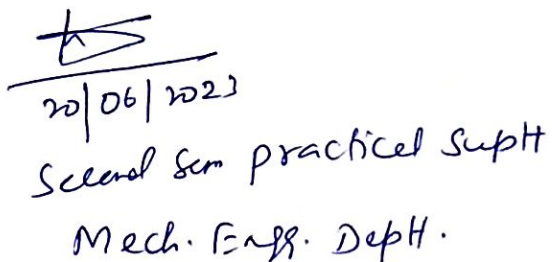 20/06/2023
Second Sem practical Suptt
Mech. Engg. Deptt.